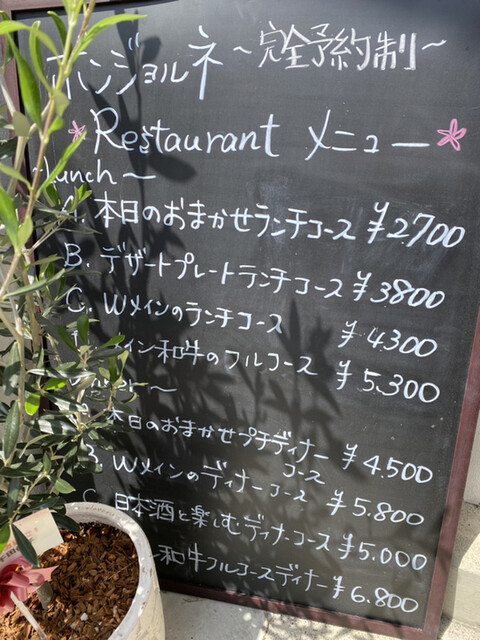 ボンジョルネ ～完全予約制～
Restaurant メニュー
lunch～
A. 本日のおまかせランチコース ¥2700
B. デザートプレートランチコース ¥3800
C. Wメインのランチコース ¥4300
メイン和牛のフルコース ¥5.300
～
本日のおまかせプチディナーコース ¥4.500
B. Wメインのディナーコース ¥5.800
C 日本酒と楽しむディナーコース ¥5.000
和牛フルコースディナー ¥6.800